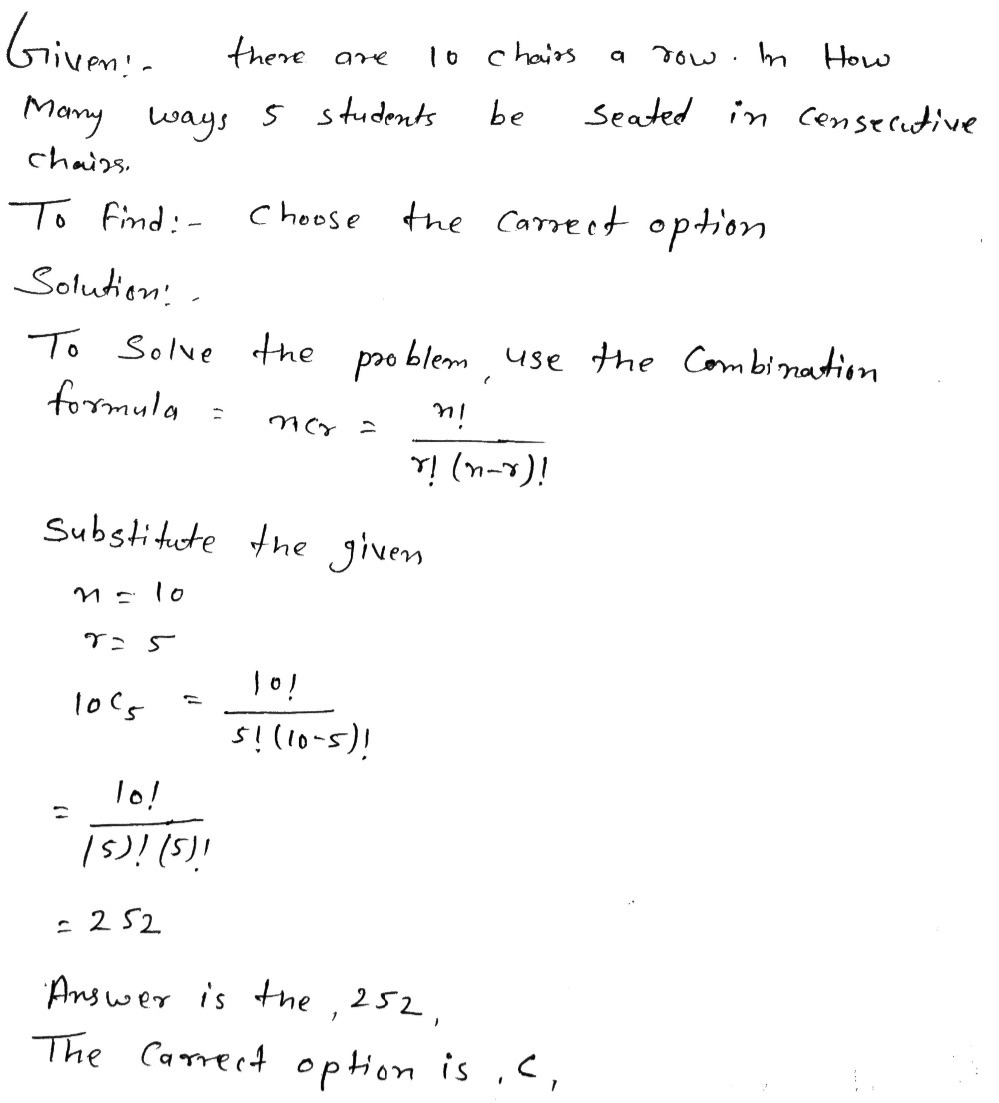 Given:- there are 10 chairs a row. In How
Many ways 5 students be seated in censecutive
chairs.
To find:- Choose the Carrect option
Solution:-
To Solve the problem, use the Combination
formula = ncr = n! / r! (n-r)!
Substitute the given
n = 10
r = 5
10C5 = 10! / 5! (10-5)!
= 10! / (5)! (5)!
= 252
Answer is the, 252,
The Carrect option is, C,